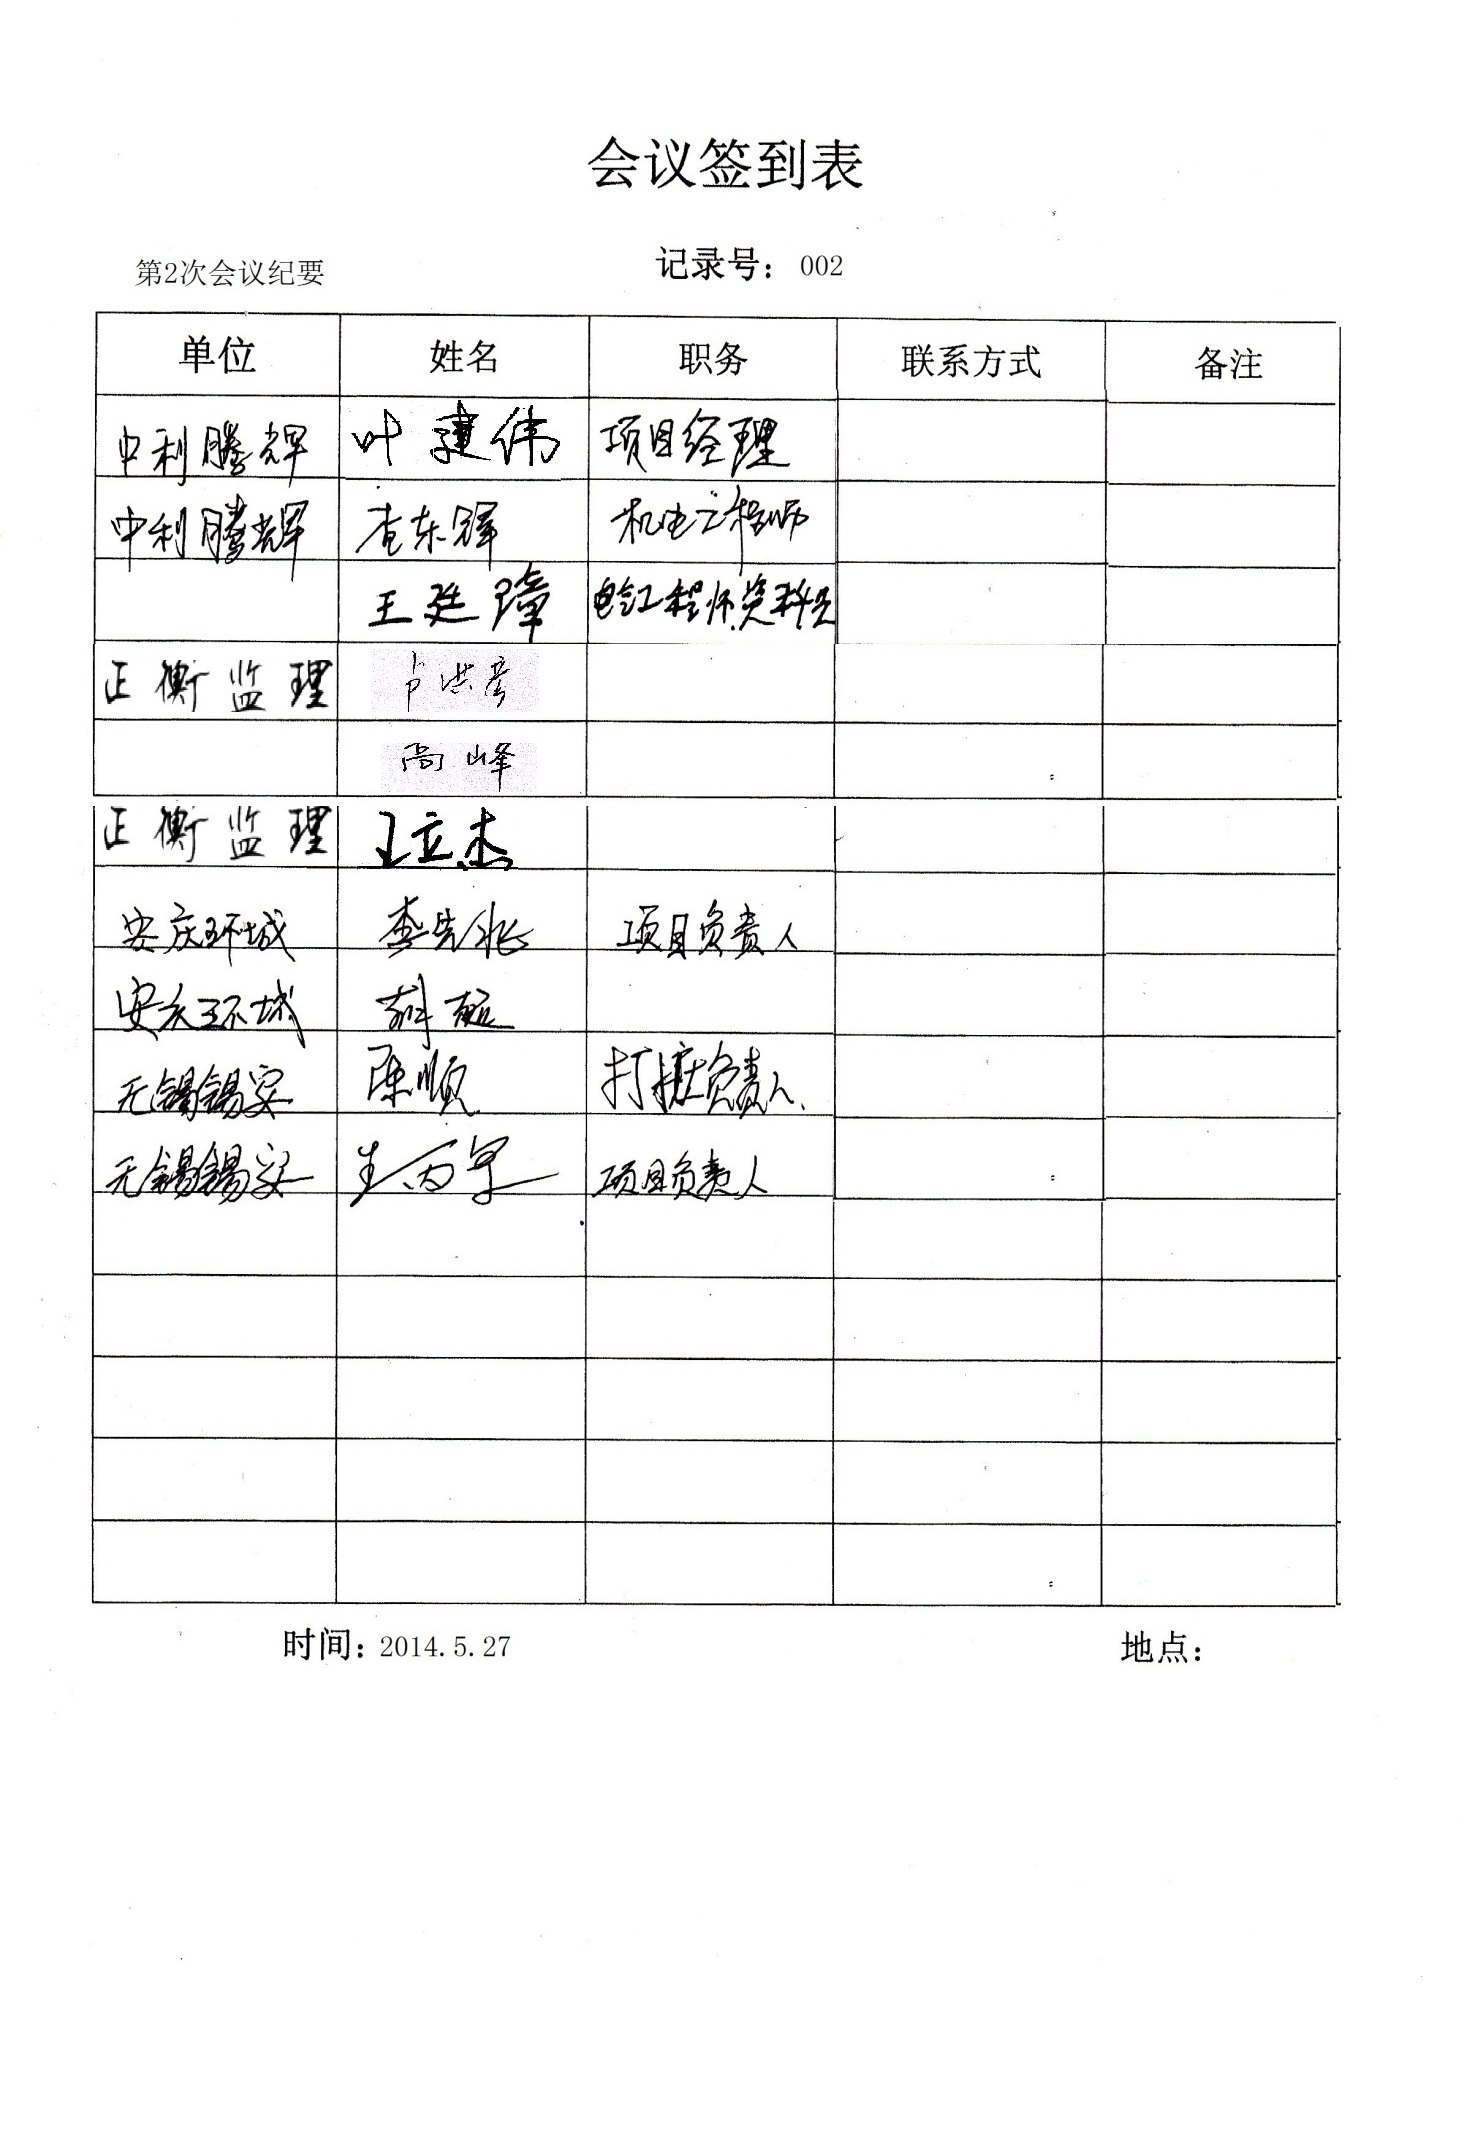 会议签到表
第2次会议纪要 记录号： 002
单位 姓名 职务 联系方式 备注
中利腾辉 叶建伟 项目经理
中利腾辉 查东辉 机电工程师
王廷璋 电气工程师.资料员
正衡监理 卢洪彦
高峰
正衡监理 王立杰
安庆环城 李先兆 项目负责人
安庆环城
无锡锡安 陈顺 打桩负责人.
无锡锡安 项目负责人
时间: 2014.5.27 地点：